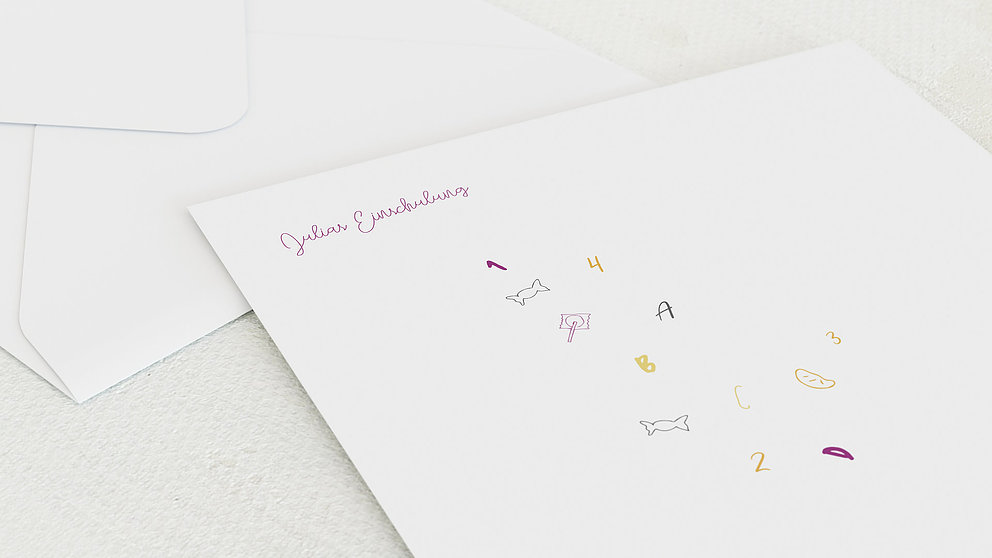 Julias Einschulung
1
4
A
3
B
C
2
D